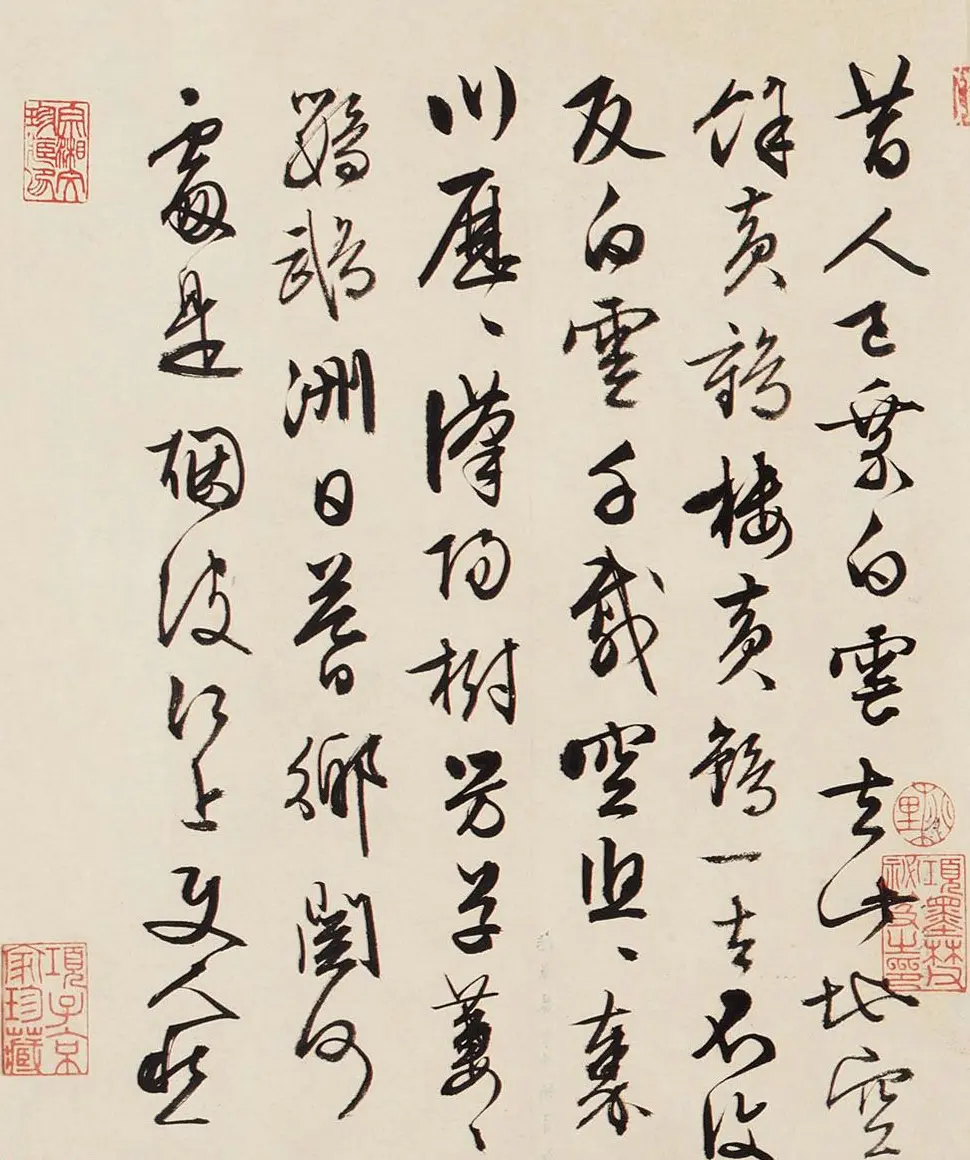 昔人已乘白雲去此地空
餘黃鶴樓黃鶴一去不復
反白雲千載空悠〻秦
川歷〻漢陽樹芳草萋〻
鸚鵡洲日暮鄉關何
處是烟波江上使人愁
檇李
項墨林父祕笈之印
宗湘文珍臧印
項子京家珍藏